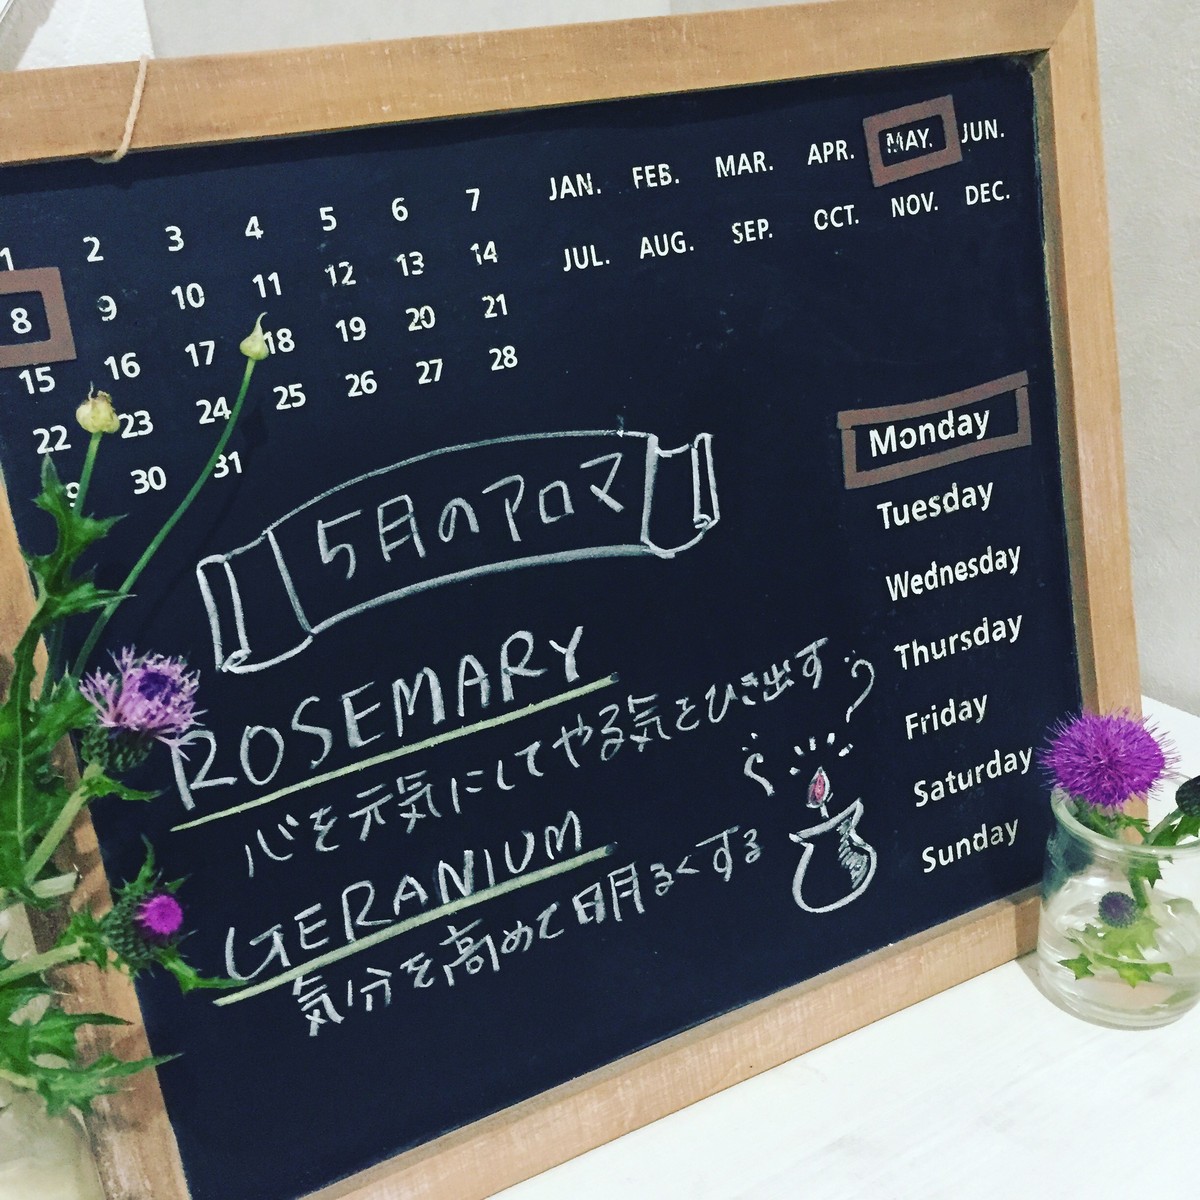 1 2 3 4 5 6 7
8 9 10 11 12 13 14
15 16 17 18 19 20 21
22 23 24 25 26 27 28
30 31
JAN. FEB. MAR. APR. MAY. JUN.
JUL. AUG. SEP. OCT. NOV. DEC.
Monday
Tuesday
Wednesday
Thursday
Friday
Saturday
Sunday
5月のアロマ
ROSEMARY
心を元気にしてやる気をひき出す
GERANIUM
気分を高めて明るくする